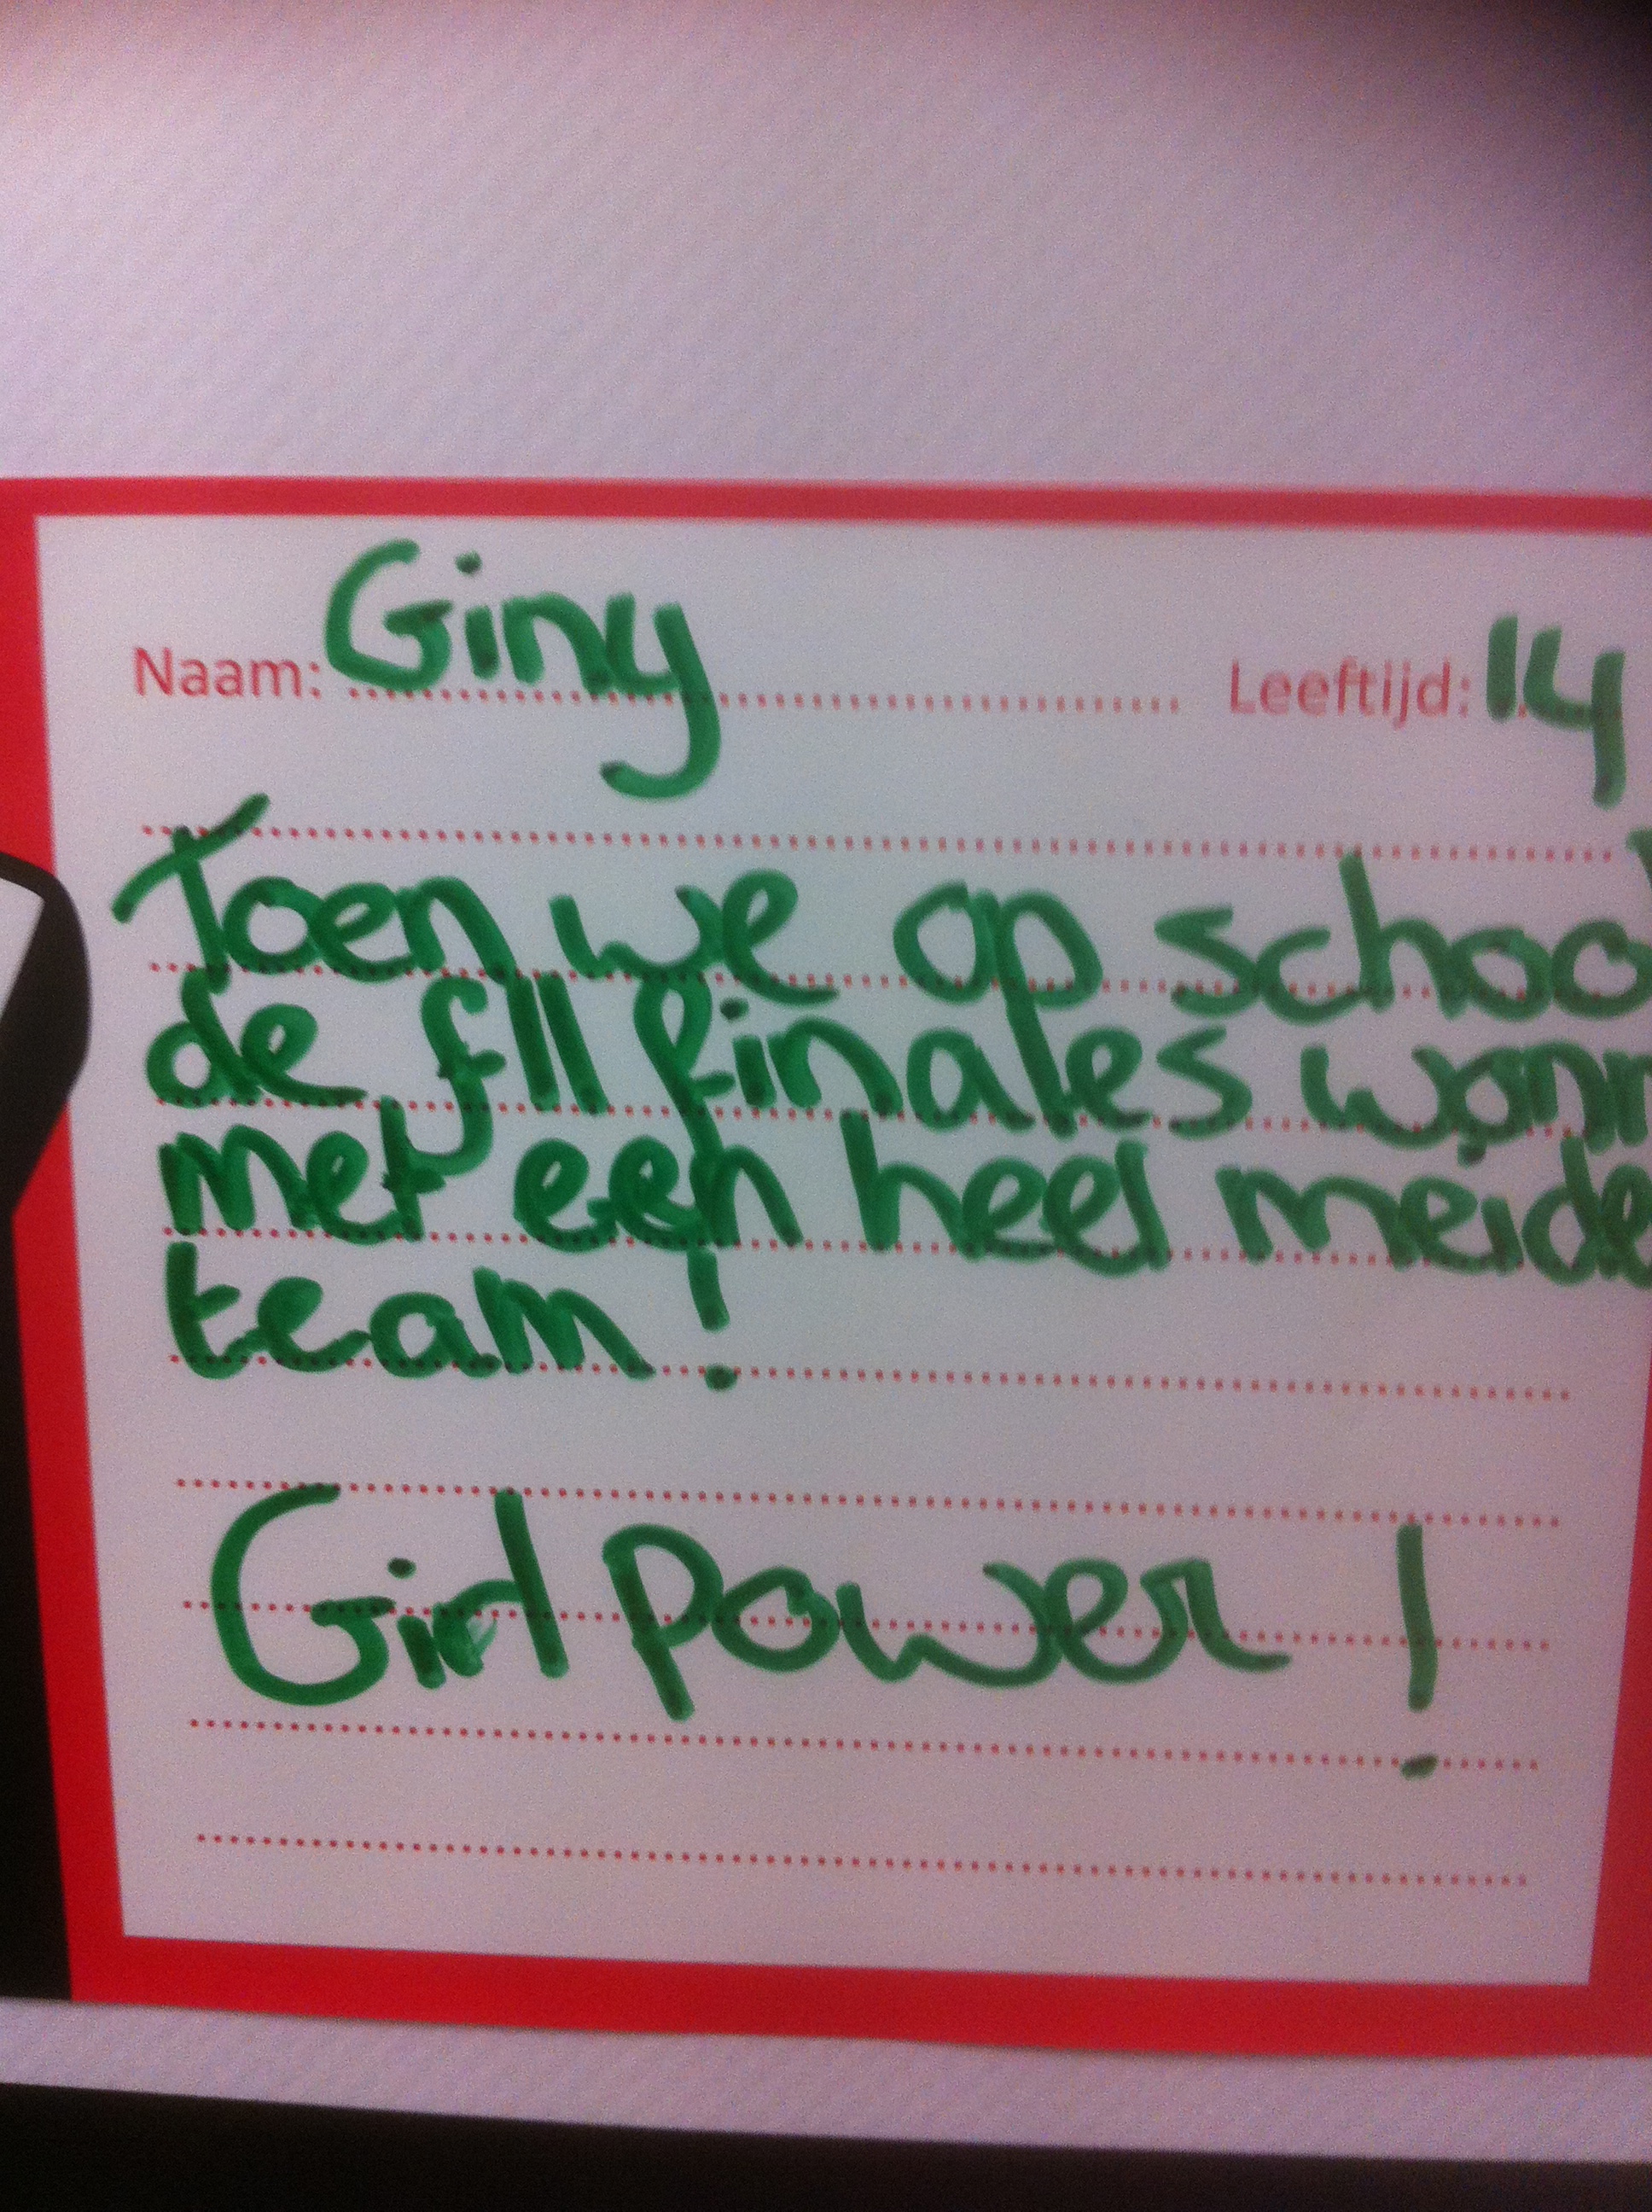 Naam: Giny Leeftijd: 14
Toen we op school
de fll finales wonn
met een heel meide
team!
Girl power!